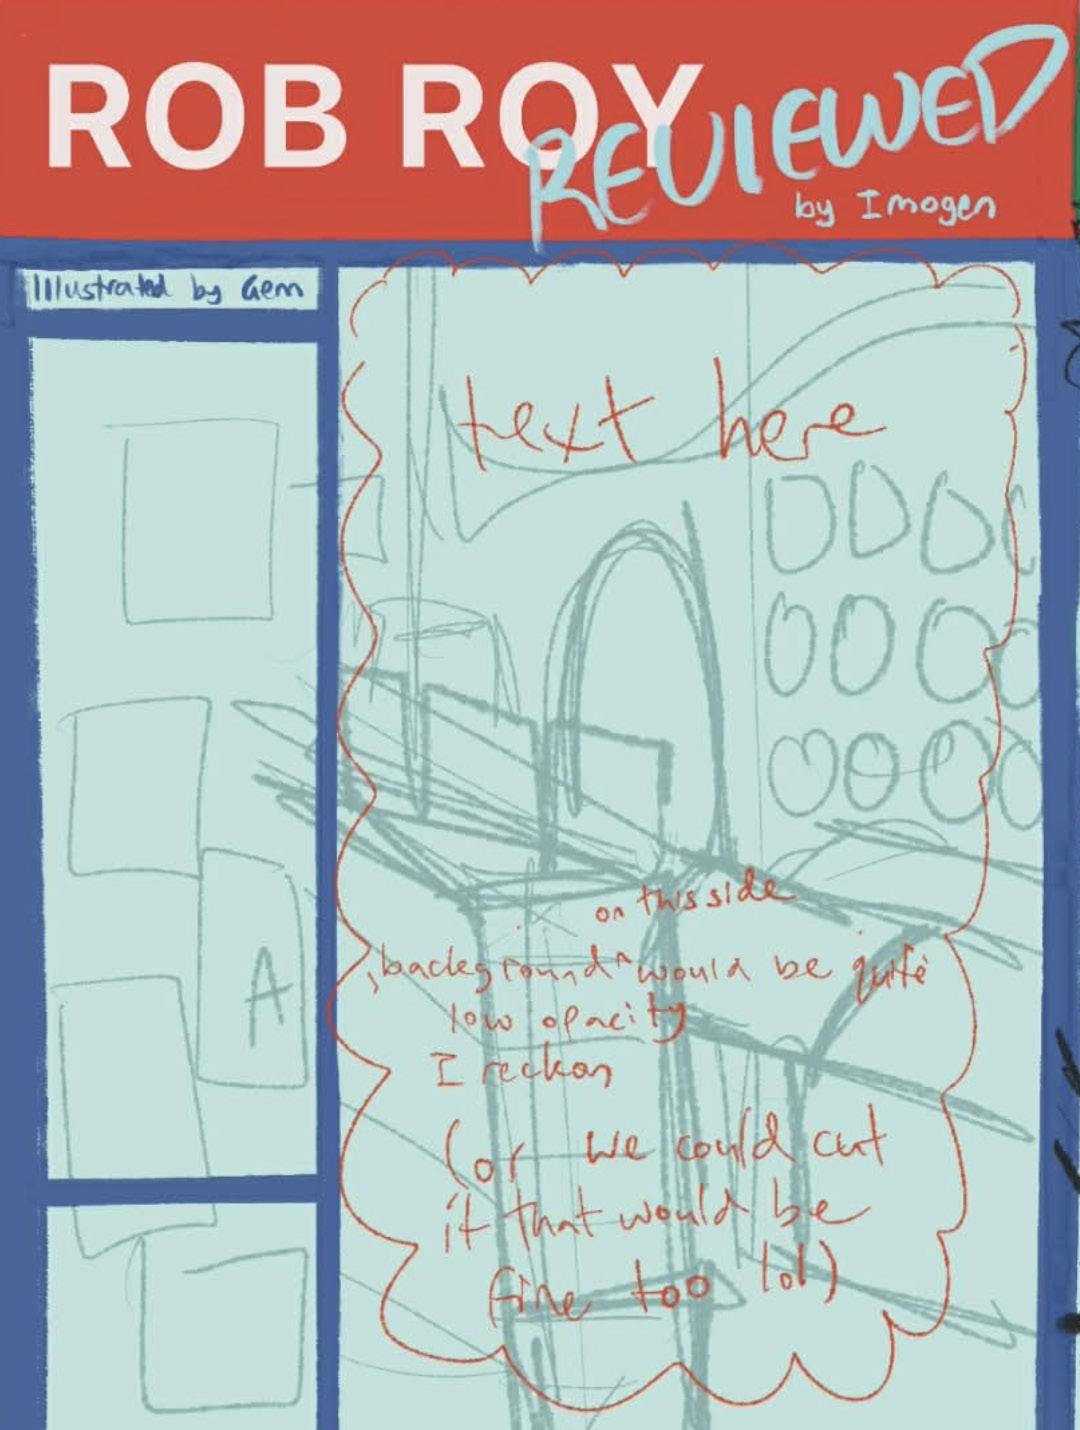 ROB ROY
REVIEWED
by Imogen
Illustrated by Gem
text here
on this side
background ^ would be quite
low opacity
I reckon
(or we could cut
it that would be
fine too lol)
A